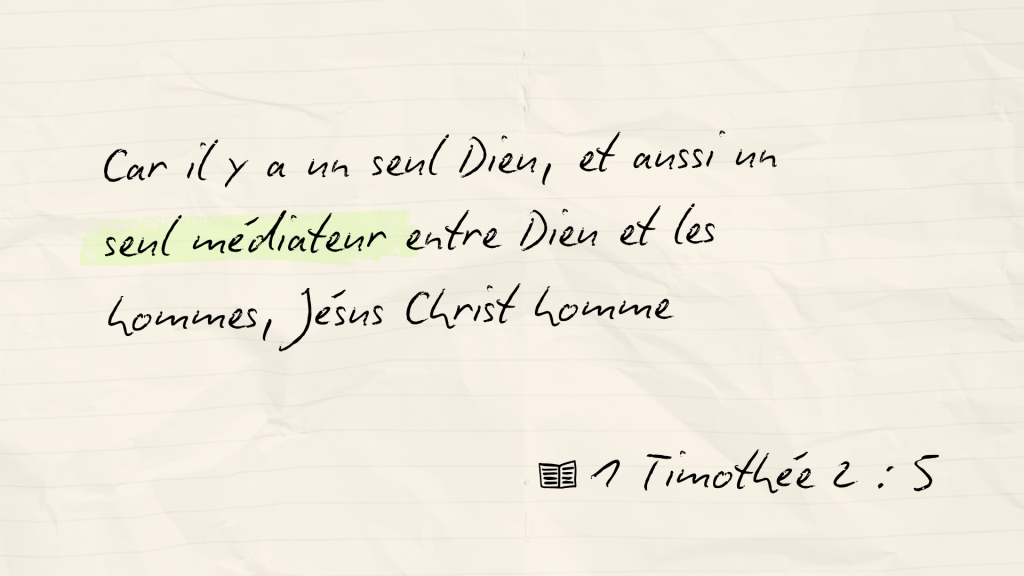 Car il y a un seul Dieu, et aussi un
seul médiateur entre Dieu et les
hommes, Jésus Christ homme
1 Timothée 2 : 5